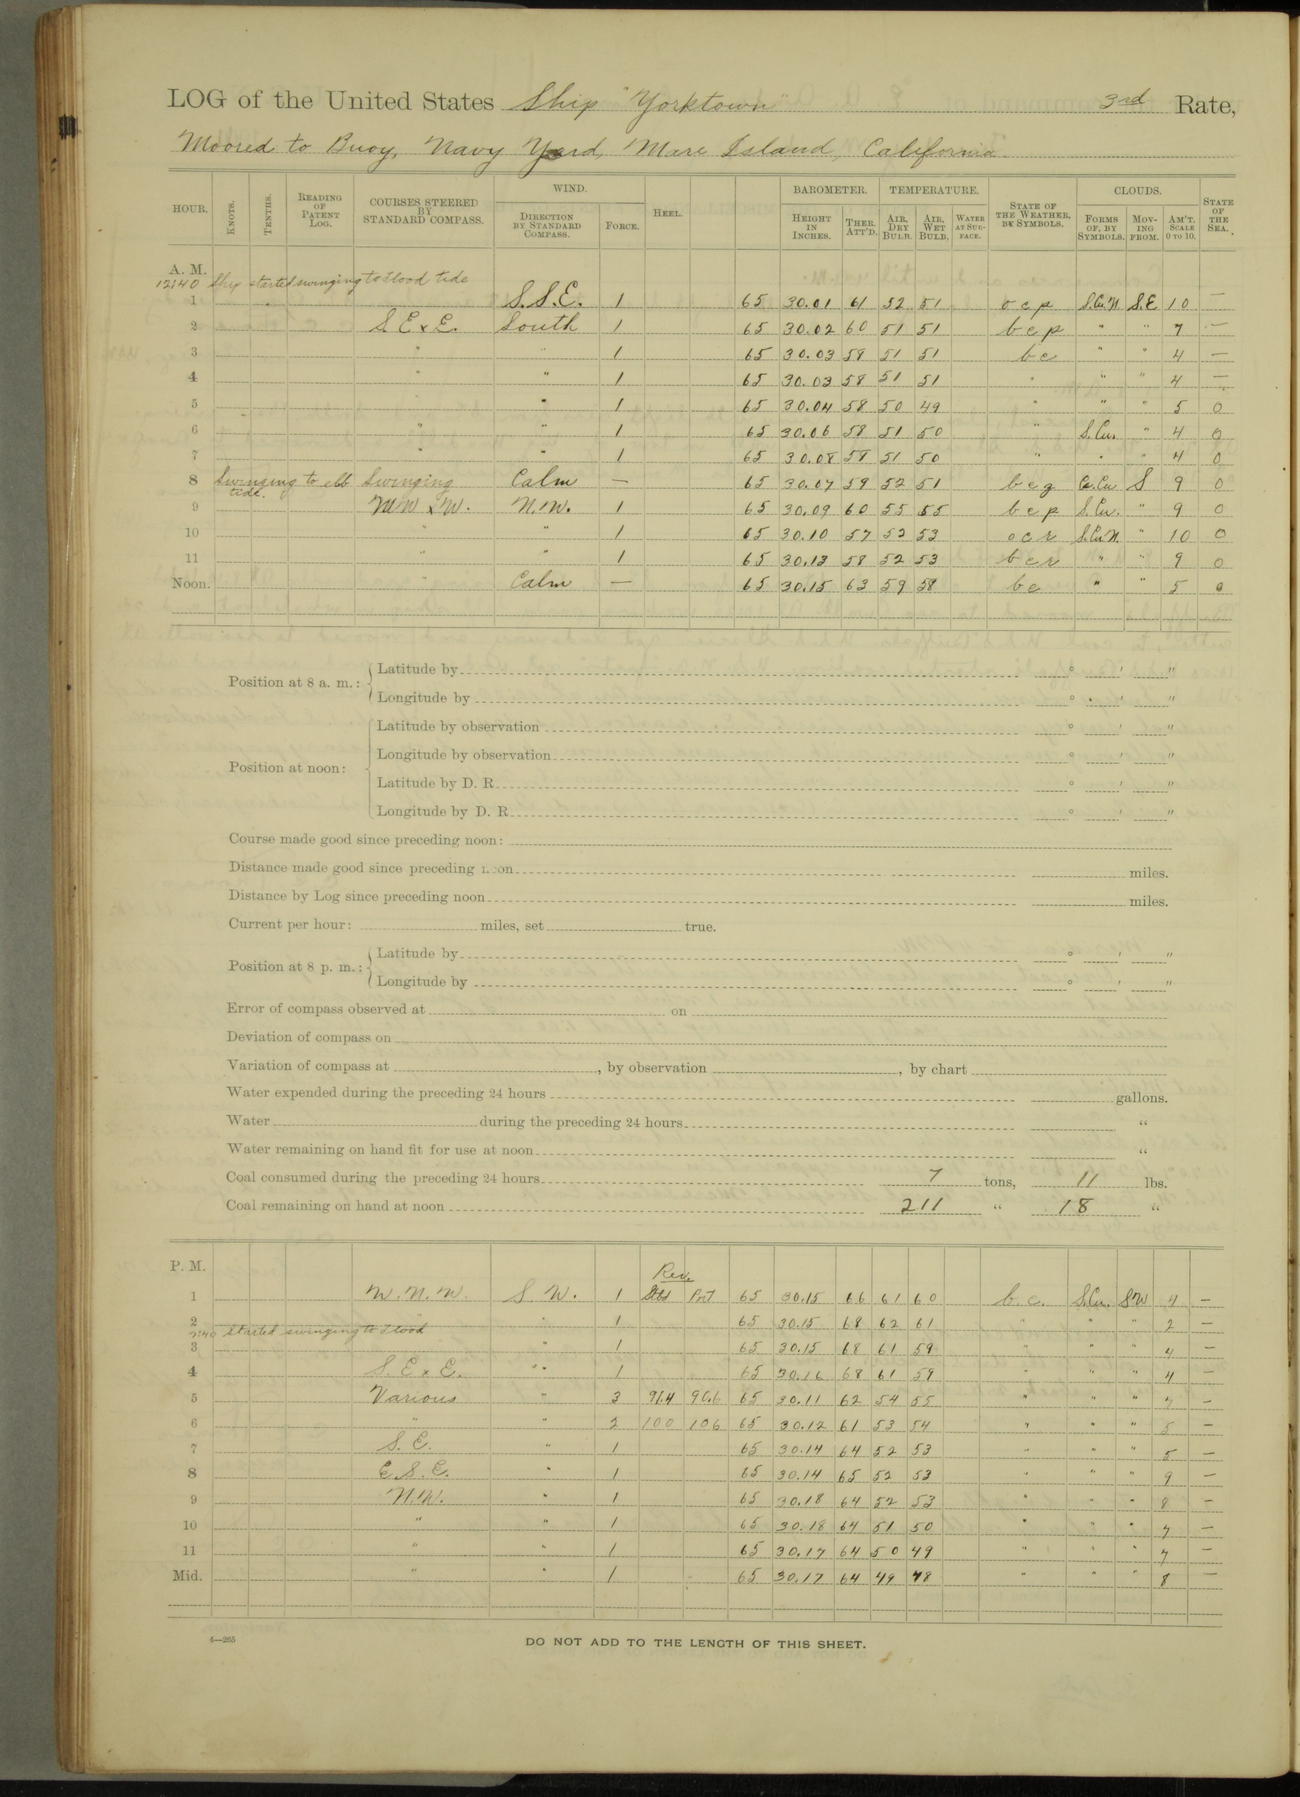 LOG of the United States Ship "Yorktown" 3rd Rate,
Moored to Buoy, Navy Yard, Mare Island, California.
HOUR. KNOTS. TENTHS. READING OF PATENT LOG. COURSES STEERED BY STANDARD COMPASS. WIND. DIRECTION BY STANDARD COMPASS. FORCE. HEEL. BAROMETER. HEIGHT IN INCHES. THER. ATT'D. TEMPERATURE. AIR, DRY BULB. AIR, WET BULB. WATER AT SURFACE. STATE OF THE WEATHER, BY SYMBOLS. CLOUDS. FORMS OF, BY SYMBOLS. MOVING FROM. AM'T. SCALE 0 TO 10. STATE OF THE SEA.
A. M.
12:40 Ship started swinging to flood tide
1 S.S.E. 1 65 30.01 61 52 51 o c p S.Cu.N S.E 10 —
2 S E x E. South 1 65 30.02 60 51 51 b c p " " 7 —
3 " " 1 65 30.03 58 51 51 b c " " 4 —
4 " " 1 65 30.03 58 51 51 " " " 4 —
5 " " 1 65 30.04 58 50 49 " " " 5 0
6 " " 1 65 30.06 58 51 50 " S.Cu. " 4 0
7 " " 1 65 30.08 58 51 50 " " " 4 0
8 Swinging to ebb tide. Swinging Calm — 65 30.07 59 52 51 b c g S 9 0
9 N.W. 1 65 30.09 60 55 55 b c p S.Cu. " 9 0
10 " " 1 65 30.10 57 52 53 o c r S.Cu.N. " 10 0
11 " " 1 65 30.13 58 52 53 b c r " " 9 0
Noon. " Calm — 65 30.15 63 59 58 b c " " 5 0
Position at 8 a. m.: Latitude by ° ' "
Longitude by ° ' "
Position at noon: Latitude by observation ° ' "
Longitude by observation ° ' "
Latitude by D. R. ° ' "
Longitude by D. R. ° ' "
Course made good since preceding noon:
Distance made good since preceding noon miles.
Distance by Log since preceding noon miles.
Current per hour: miles, set true.
Position at 8 p. m.: Latitude by ° ' "
Longitude by ° ' "
Error of compass observed at on
Deviation of compass on
Variation of compass at , by observation , by chart
Water expended during the preceding 24 hours gallons.
Water during the preceding 24 hours "
Water remaining on hand fit for use at noon "
Coal consumed during the preceding 24 hours 7 tons, 11 lbs.
Coal remaining on hand at noon 211 " 18 "
P. M.
Rev.
1 W. N. W. S. W. 1 Stb Port 65 30.15 66 61 60 b. c. S.Cu. SW 4 —
2 " 1 65 30.15 68 62 61 " " " 2 —
2:40 started swinging to flood
3 " 1 65 30.15 68 61 59 " " " 4 —
4 S. E x E. " 1 65 30.16 68 61 59 " " " 4 —
5 Various " 3 96.4 90.6 65 30.11 62 54 55 " " " 7 —
6 " " 2 100 106 65 30.12 61 53 54 " " " 5 —
7 S. E. " 1 65 30.14 64 52 53 " " " 5 —
8 E. S. E. " 1 65 30.14 65 52 53 " " " 9 —
9 N.W. " 1 65 30.18 64 52 53 " " " 8 —
10 " " 1 65 30.18 64 51 50 " " " 7 —
11 " " 1 65 30.17 64 50 49 " " " 7 —
Mid. " " 1 65 30.17 64 49 48 " " " 8 —
6—265
DO NOT ADD TO THE LENGTH OF THIS SHEET.